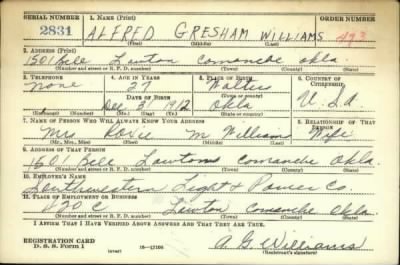 SERIAL NUMBER 1. NAME (Print) ORDER NUMBER
2831 ALFRED GRESHAM WILLIAMS 493
(First) (Middle) (Last)
2. ADDRESS (Print)
1501 Bell Lawton Comanche Okla
(Number and street or R. F. D. number) (Town) (County) (State)
3. TELEPHONE 4. AGE IN YEARS 5. PLACE OF BIRTH 6. COUNTRY OF CITIZENSHIP
none 27 Walters
DATE OF BIRTH (Town or county)
Dec 31 1912 Okla U.S.A
(Exchange) (Number) (Mo.) (Day) (Yr.) (State or country)
7. NAME OF PERSON WHO WILL ALWAYS KNOW YOUR ADDRESS 8. RELATIONSHIP OF THAT PERSON
Mrs Roxie M Williams Wife
(Mr., Mrs., Miss) (First) (Middle) (Last)
9. ADDRESS OF THAT PERSON
1501 Bell Lawton Comanche Okla.
(Number and street or R. F. D. number) (Town) (County) (State)
10. EMPLOYER'S NAME
Southwestern Light & Power Co.
11. PLACE OF EMPLOYMENT OR BUSINESS
820 C Lawton Comanche Okla.
(Number and street or R. F. D. number) (Town) (County) (State)
I AFFIRM THAT I HAVE VERIFIED ABOVE ANSWERS AND THAT THEY ARE TRUE.
REGISTRATION CARD
D. S. S. Form 1 (over) 16—17105 A G Williams
(Registrant's signature)